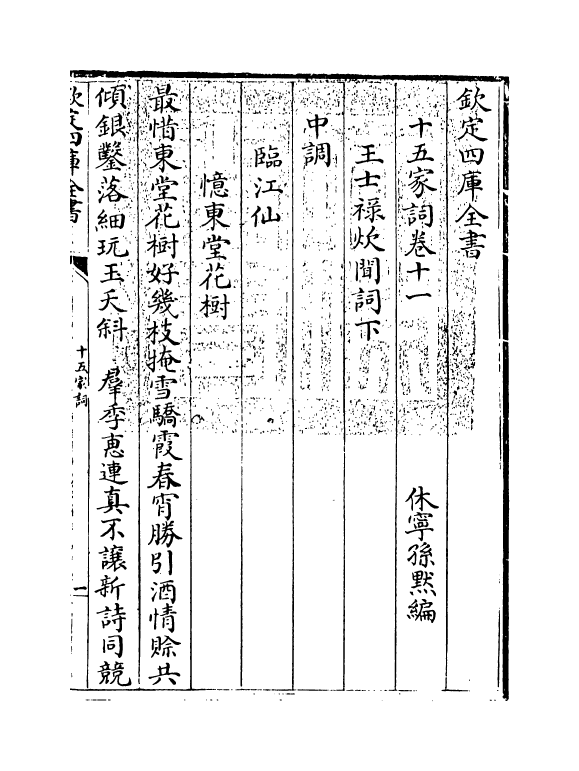 欽定四庫全書
十五家詞卷十一
休寧孫默編
王士祿炊聞詞下
中調
臨江仙
憶東堂花樹
最惜東堂花樹好幾枝掩雪驕霞春宵勝引酒情賒共
傾銀鑿落細玩玉夭斜　羣季惠連真不讓新詩同競
欽定四庫全書
十五家詞
一